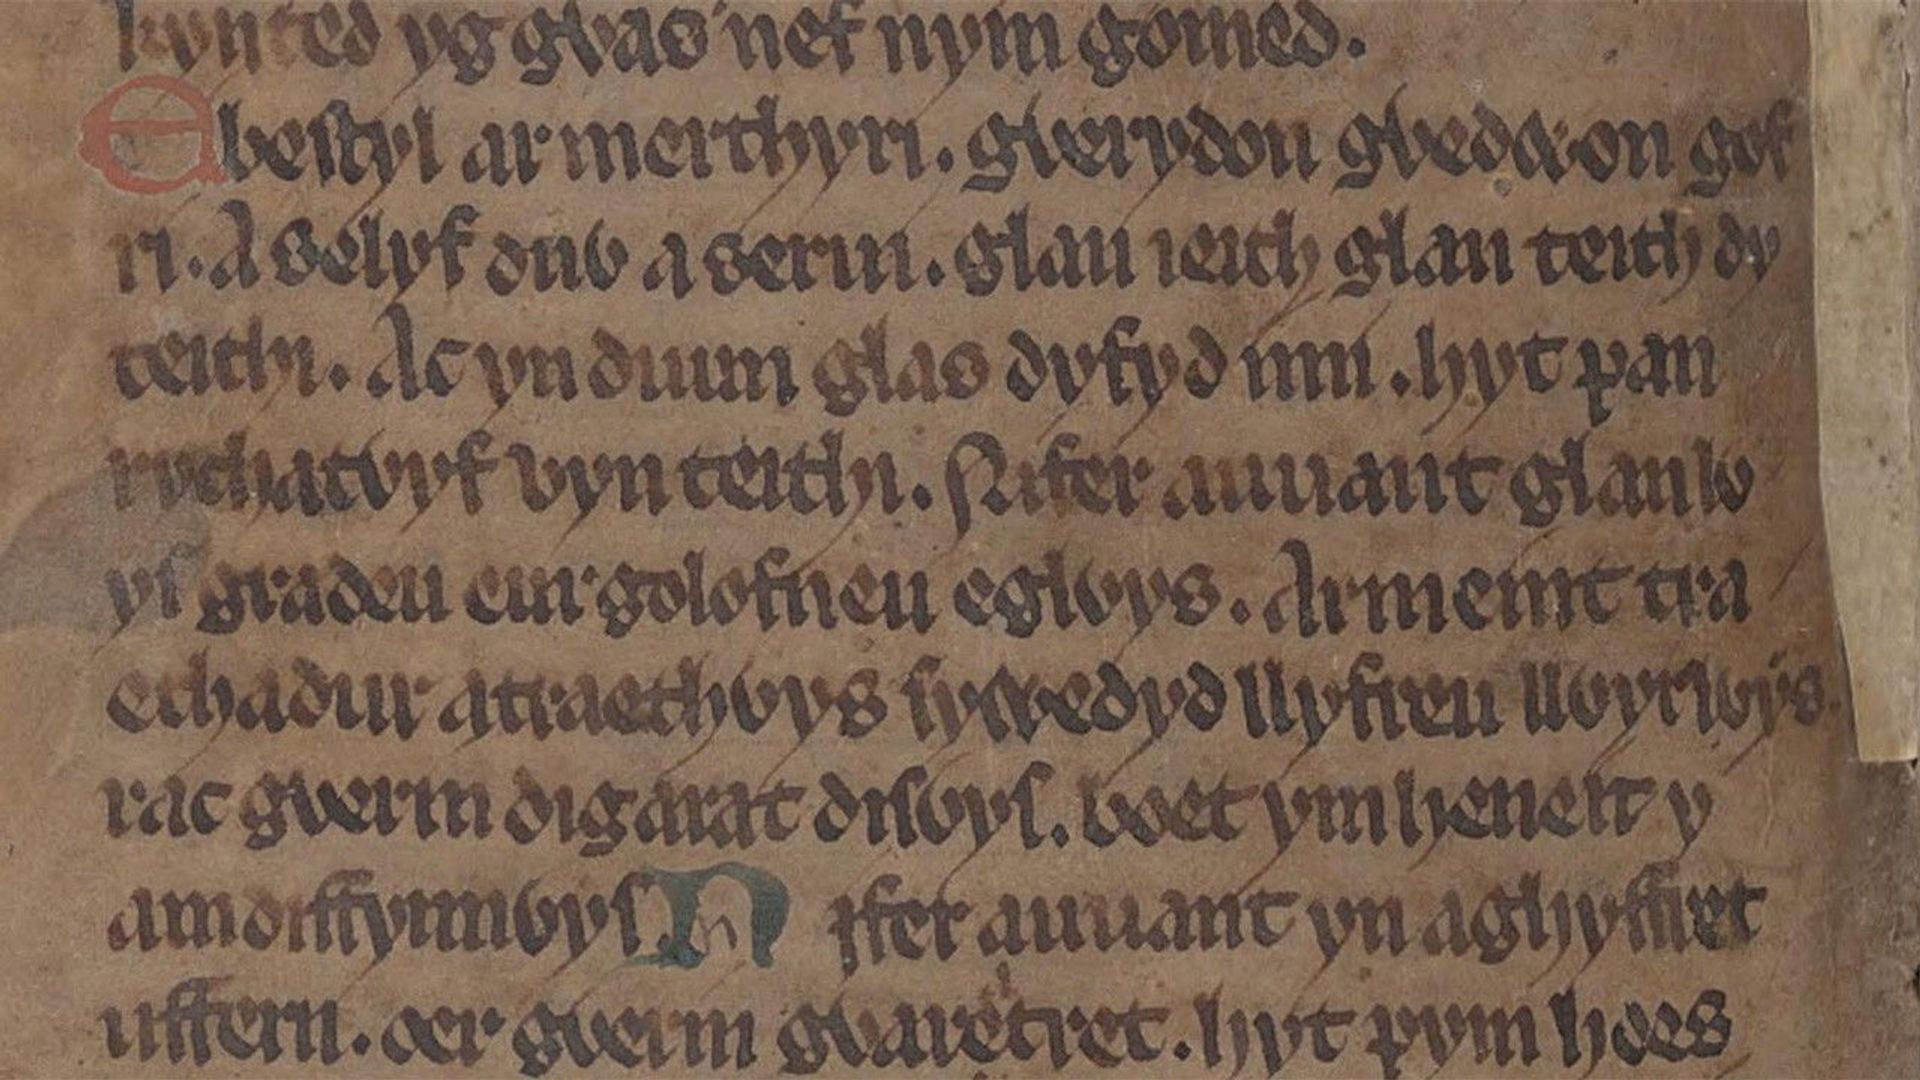 kynted yg gvas nef nym gomed.
Ebestyl ar merthyri. gverydon gvedwon gof
ri. A selyf duv a serui. glan ieith glan teith dy
teithi. Ac yn duun glas dyfyd imi. hyt pan
rychatvyf vyn teithi. Nifer auuant glanlv
ys graden eur golofneu eglvys. Ar meint tra
echadur atraethvys sywedyd llyfreu llvyrlvys.
rac gverin digarat disvys. boet ym heneit y
amdiffynnvys Nifer auuant yn aghyffret
uffern. oer gverin gvaretret. hyt pym hoes